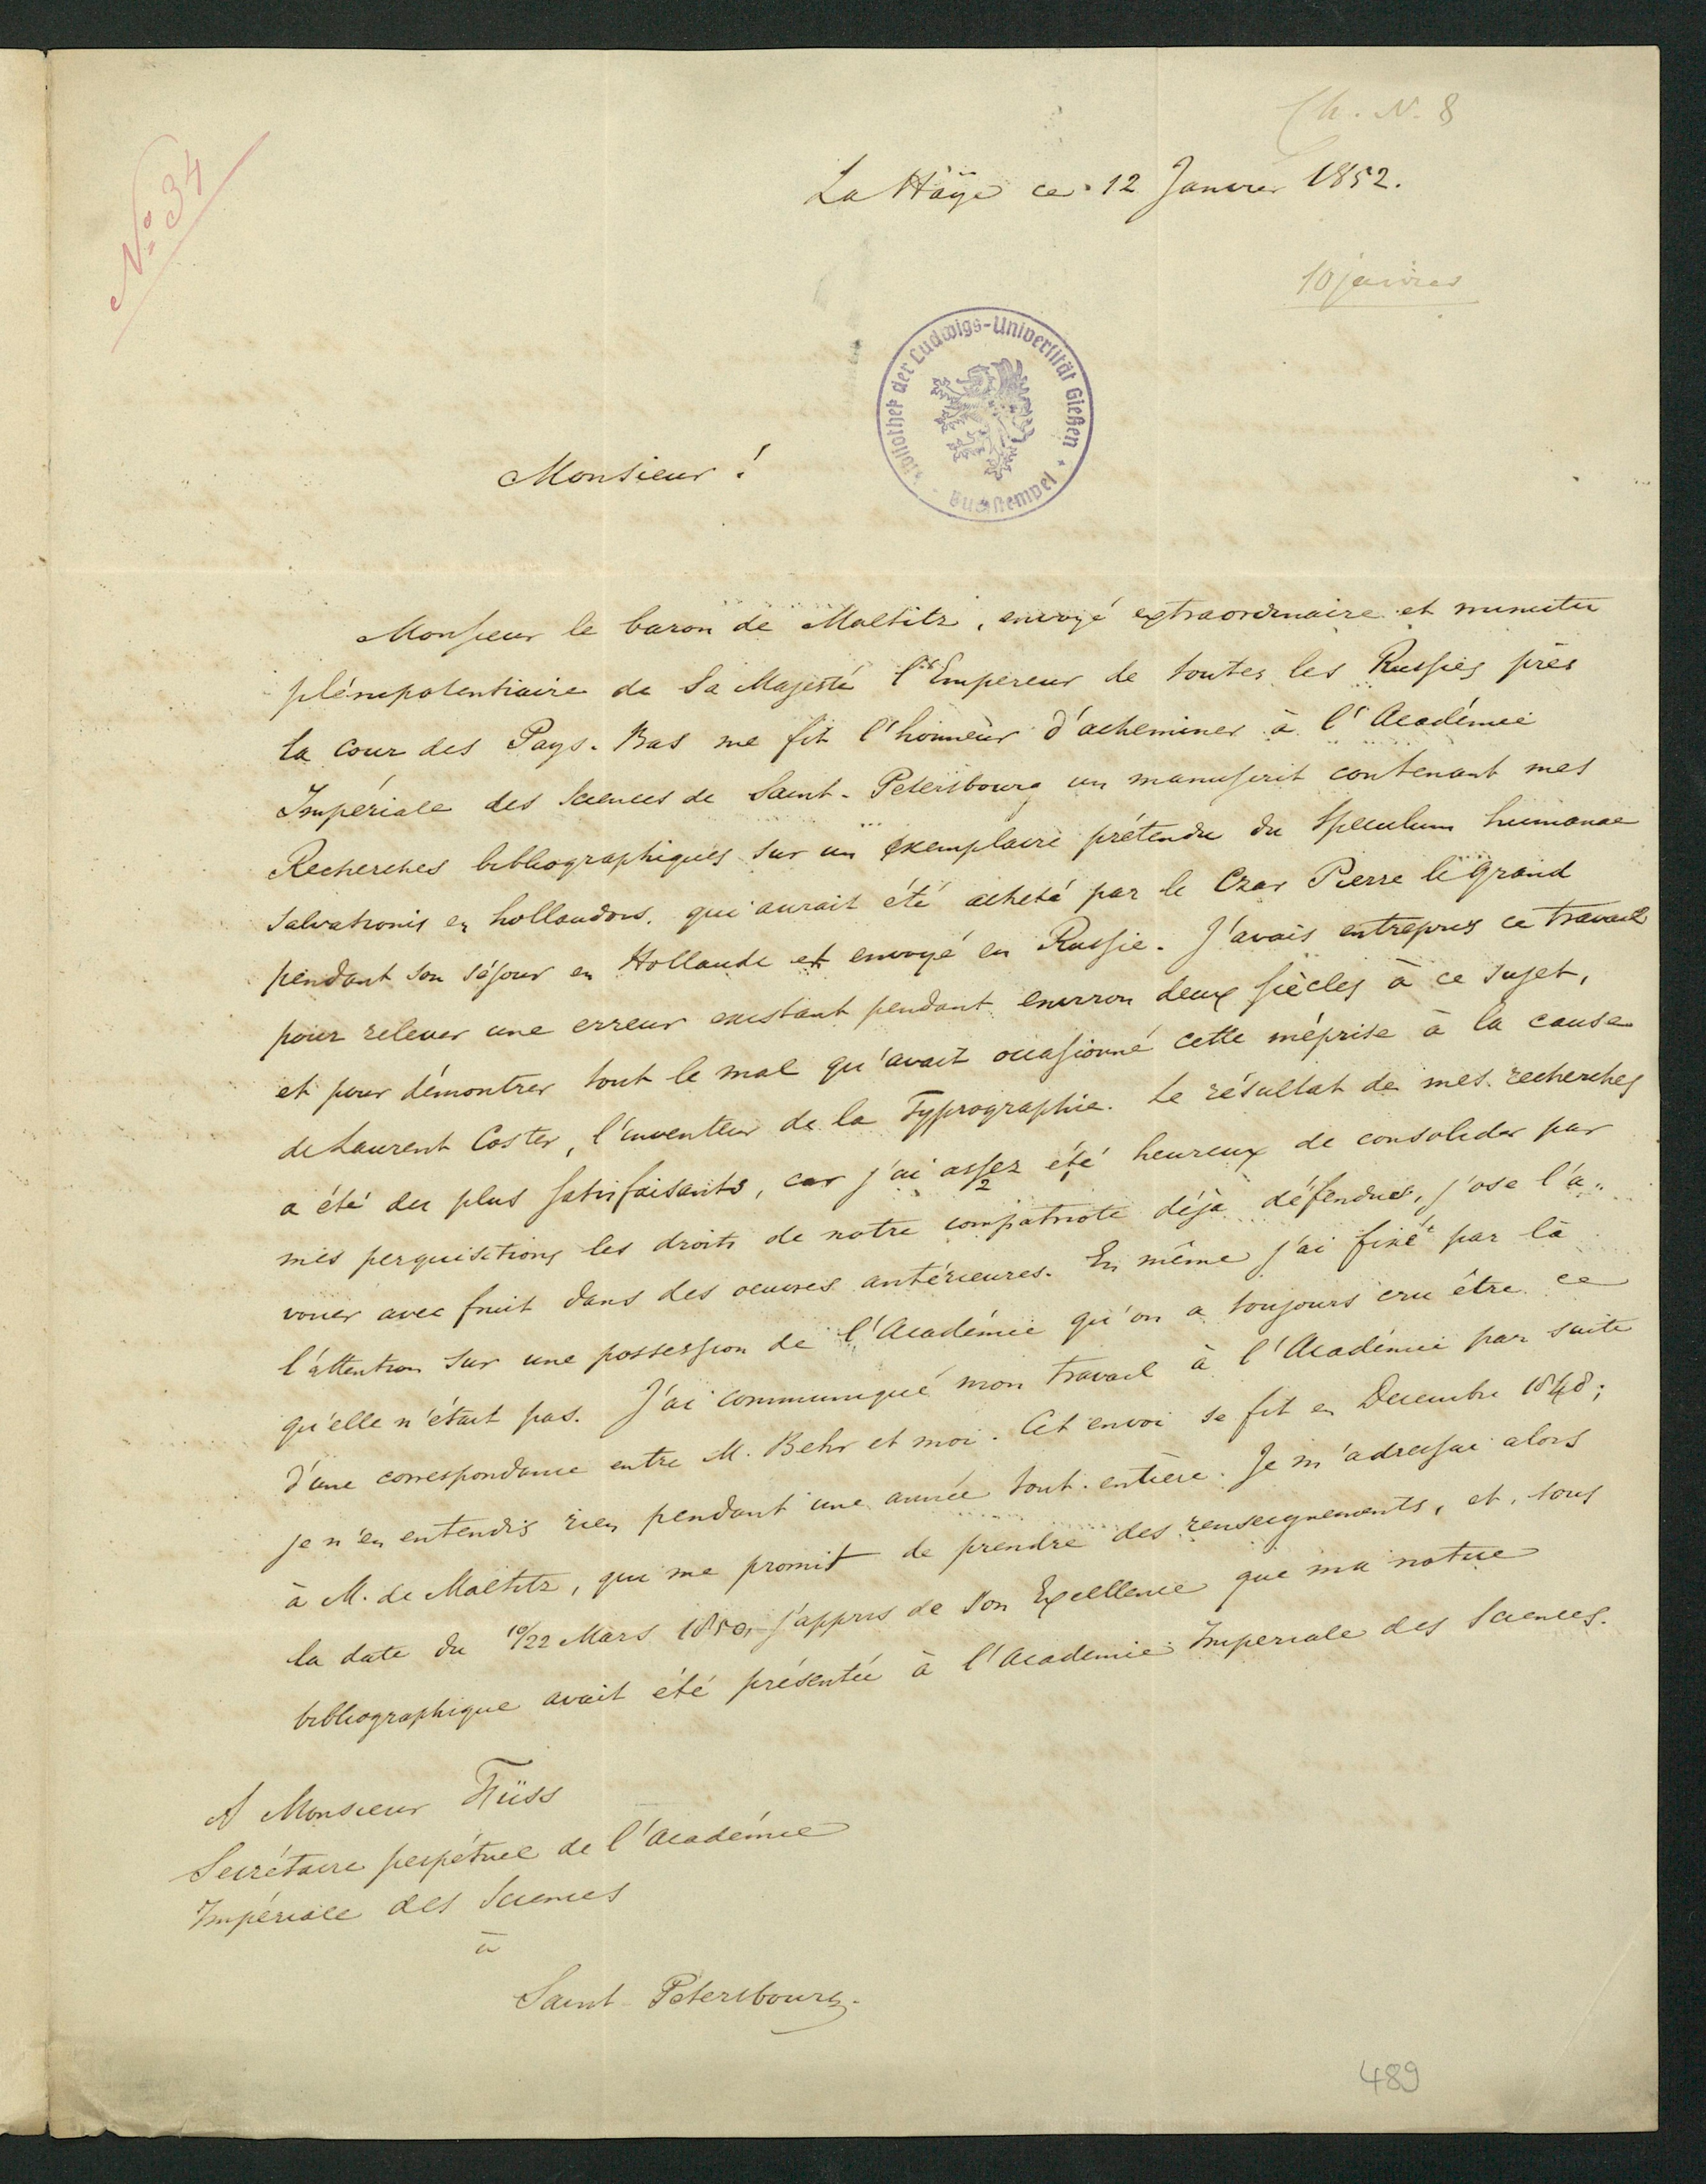 Ch. N. 8
No. 34
La Haÿe ce 12 Janvier 1852.
10 janvier
Bibliothek der Ludwigs-Universität Gießen
Buchstempel
Monsieur !
Monsieur le baron de Maltitz, envoyé extraordinaire et ministre
plénipotentiaire de Sa Majesté l'Empereur de toutes les Russies près
la cour des Pays-Bas me fit l'honneur d'acheminer à l'Académie
Impériale des Sciences de Saint-Petersbourg un manuscrit contenant mes
Recherches bibliographiques sur un exemplaire prétendu du Speculum humanae
salvationis en hollandois, qui aurait été acheté par le Czar Pierre le grand
pendant son séjour en Hollande et envoyé en Russie. J'avais entrepris ce travail
pour relever une erreur existant pendant environ deux siècles à ce sujet,
et pour démontrer tout le mal qu'avait occasionné cette méprise à la cause
de Laurent Coster, l'inventeur de la Typographie. Le résultat de mes recherches
a été des plus satisfaisants, car j'ai assez été heureux de consolider par
mes perquisitions les droits de notre compatriote déjà défendues, j'ose l'a-
vouer avec fruit dans des oeuvres antérieures. En même j'ai fixé par là
l'attention sur une possession de l'Académie qu'on a toujours cru être ce
qu'elle n'était pas. J'ai communiqué mon travail à l'Académie par suite
d'une correspondance entre M. Behr et moi. Cet envoi se fit en Decembre 1848;
je n'en entendis rien pendant une année tout-entière. Je m'adressai alors
à M. de Maltitz, qui me promit de prendre des renseignements, et, sous
la date du 10/22 Mars 1850, j'appris de Son Excellence que ma notice
bibliographique avait été présentée à l'Academie Imperiale des Sciences.
A Monsieur Füss
Secrétaire perpétuel de l'Académie
Impériale des Sciences
à
Saint-Petersbourg.
489